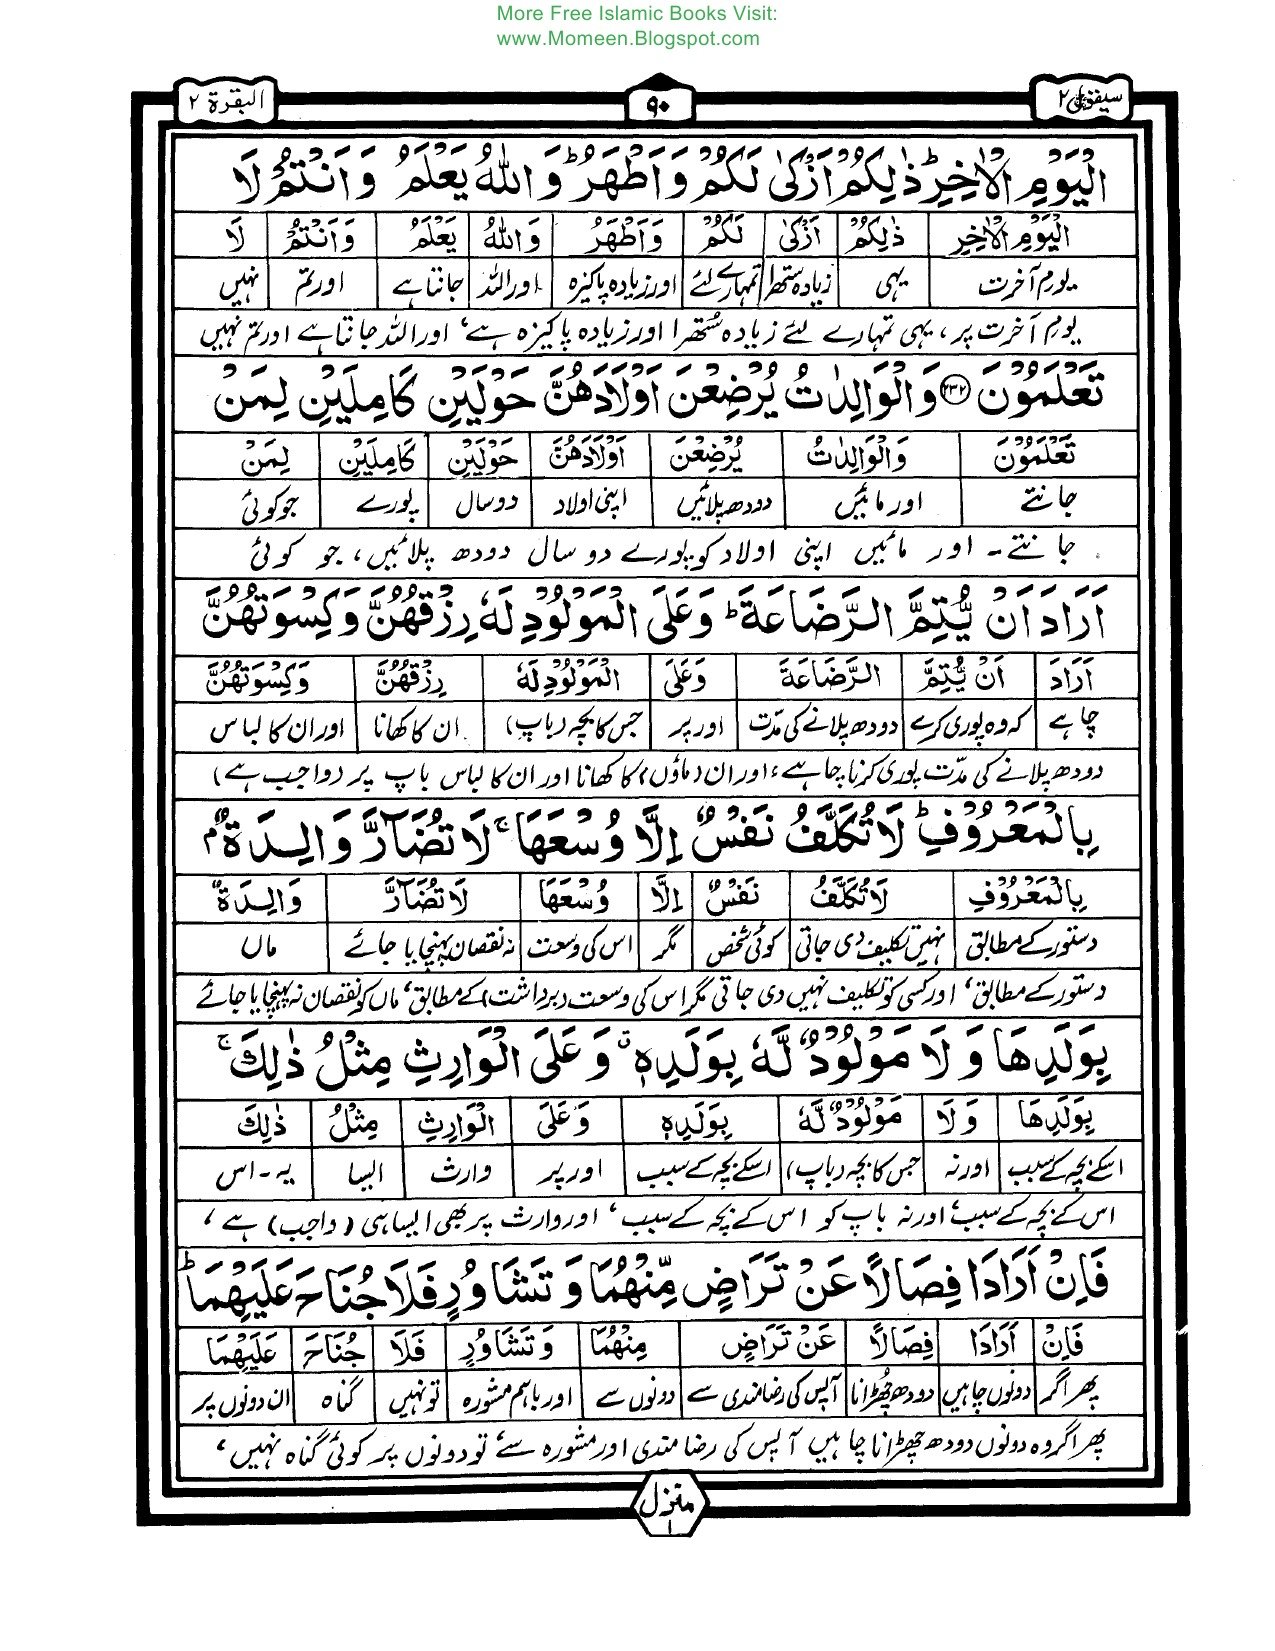 More Free Islamic Books Visit:
www.Momeen.Blogspot.com
سیقول ۲ ۹۰ البقرة ۲
الْيَوْمِ الْاٰخِرِ ؕ ذٰلِكُمْ اَزْكٰى لَكُمْ وَاَطْهَرُ ؕ وَاللّٰهُ يَعْلَمُ وَاَنْتُمْ لَا
الْيَوْمِ الْاٰخِرِ ذٰلِكُمْ اَزْكٰى لَكُمْ وَاَطْهَرُ وَاللّٰهُ يَعْلَمُ وَاَنْتُمْ لَا
یوم آخرت یہی زیادہ ستھرا تمہارے لئے اور زیادہ پاکیزہ اور اللہ جانتا ہے اور تم نہیں
یوم آخرت پر، یہی تمہارے لئے زیادہ سُتھرا اور زیادہ پاکیزہ ہے، اور اللہ جانتا ہے اور تم نہیں
تَعْلَمُوْنَ ۲۳۲ وَالْوَالِدٰتُ يُرْضِعْنَ اَوْلَادَهُنَّ حَوْلَيْنِ كَامِلَيْنِ لِمَنْ
تَعْلَمُوْنَ وَالْوَالِدٰتُ يُرْضِعْنَ اَوْلَادَهُنَّ حَوْلَيْنِ كَامِلَيْنِ لِمَنْ
جانتے اور مائیں دودھ پلائیں اپنی اولاد دو سال پورے جو کوئی
جانتے۔ اور مائیں اپنی اولاد کو پورے دو سال دودھ پلائیں، جو کوئی
اَرَادَ اَنْ يُّتِمَّ الرَّضَاعَةَ ؕ وَعَلَى الْمَوْلُوْدِ لَهٗ رِزْقُهُنَّ وَكِسْوَتُهُنَّ
اَرَادَ اَنْ يُّتِمَّ الرَّضَاعَةَ وَعَلَى الْمَوْلُوْدِ لَهٗ رِزْقُهُنَّ وَكِسْوَتُهُنَّ
چاہے کہ وہ پوری کرے دودھ پلانے کی مدّت اور پر جس کا بچہ (باپ) ان کا کھانا اور ان کا لباس
دودھ پلانے کی مدّت پوری کرنا چاہے، اور ان (ماؤں) کا کھانا اور ان کا لباس باپ پر (واجب ہے)
بِالْمَعْرُوْفِ ؕ لَا تُكَلَّفُ نَفْسٌ اِلَّا وُسْعَهَا ۚ لَا تُضَآرَّ وَالِدَةٌۢ
بِالْمَعْرُوْفِ لَا تُكَلَّفُ نَفْسٌ اِلَّا وُسْعَهَا لَا تُضَآرَّ وَالِدَةٌ
دستور کے مطابق نہیں تکلیف دی جاتی کوئی شخص مگر اس کی وسعت نہ نقصان پہنچایا جائے ماں
دستور کے مطابق، اور کسی کو تکلیف نہیں دی جاتی مگر اس کی وسعت (برداشت) کے مطابق، ماں کو نقصان نہ پہنچایا جائے
بِوَلَدِهَا وَلَا مَوْلُوْدٌ لَّهٗ بِوَلَدِهٖ ۗ وَعَلَى الْوَارِثِ مِثْلُ ذٰلِكَ ۚ
بِوَلَدِهَا وَلَا مَوْلُوْدٌ لَّهٗ بِوَلَدِهٖ وَعَلَى الْوَارِثِ مِثْلُ ذٰلِكَ
اسکے بچہ کے سبب اور نہ جس کا بچہ (باپ) اسکے بچہ کے سبب اور پر وارث ایسا یہ۔اس
اس کے بچہ کے سبب، اور نہ باپ کو اس کے بچہ کے سبب، اور وارث پر بھی ایسا ہی (واجب) ہے،
فَاِنْ اَرَادَا فِصَالًا عَنْ تَرَاضٍ مِّنْهُمَا وَتَشَاوُرٍ فَلَا جُنَاحَ عَلَيْهِمَا ؕ
فَاِنْ اَرَادَا فِصَالًا عَنْ تَرَاضٍ مِنْهُمَا وَتَشَاوُرٍ فَلَا جُنَاحَ عَلَيْهِمَا
پھر اگر دونوں چاہیں دودھ چھڑانا آپس کی رضامندی سے دونوں سے اور باہم مشورہ تو نہیں گناہ ان دونوں پر
پھر اگر وہ دونوں دودھ چھڑانا چاہیں آپس کی رضا مندی اور مشورہ سے تو دونوں پر کوئی گناہ نہیں،
منزل ۱